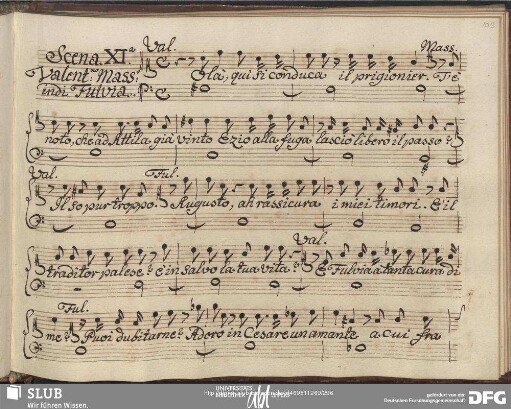 Scena XI.a
Val.
Mass.
Valent.no Mass.
indi Fulvia.
Olà, qui si conduca il prigionier. T'è
noto, che ad Attila già vinto Ezio alla fuga lasciò libero il passo?
Val.
Ful.
Il so pur troppo. Augusto, ah rassicura i miei timori. È il
Val.
traditor palese? è in salvo la tua vita? E Fulvia a tanta cura di
Ful.
me? Puoi dubitarne? Adoro in Cesare un amante a cui fra
SLUB
Wir führen Wissen.
UNIVERSITÄTS
gefördert von der
Deutschen Forschungsgemeinschaft
DFG